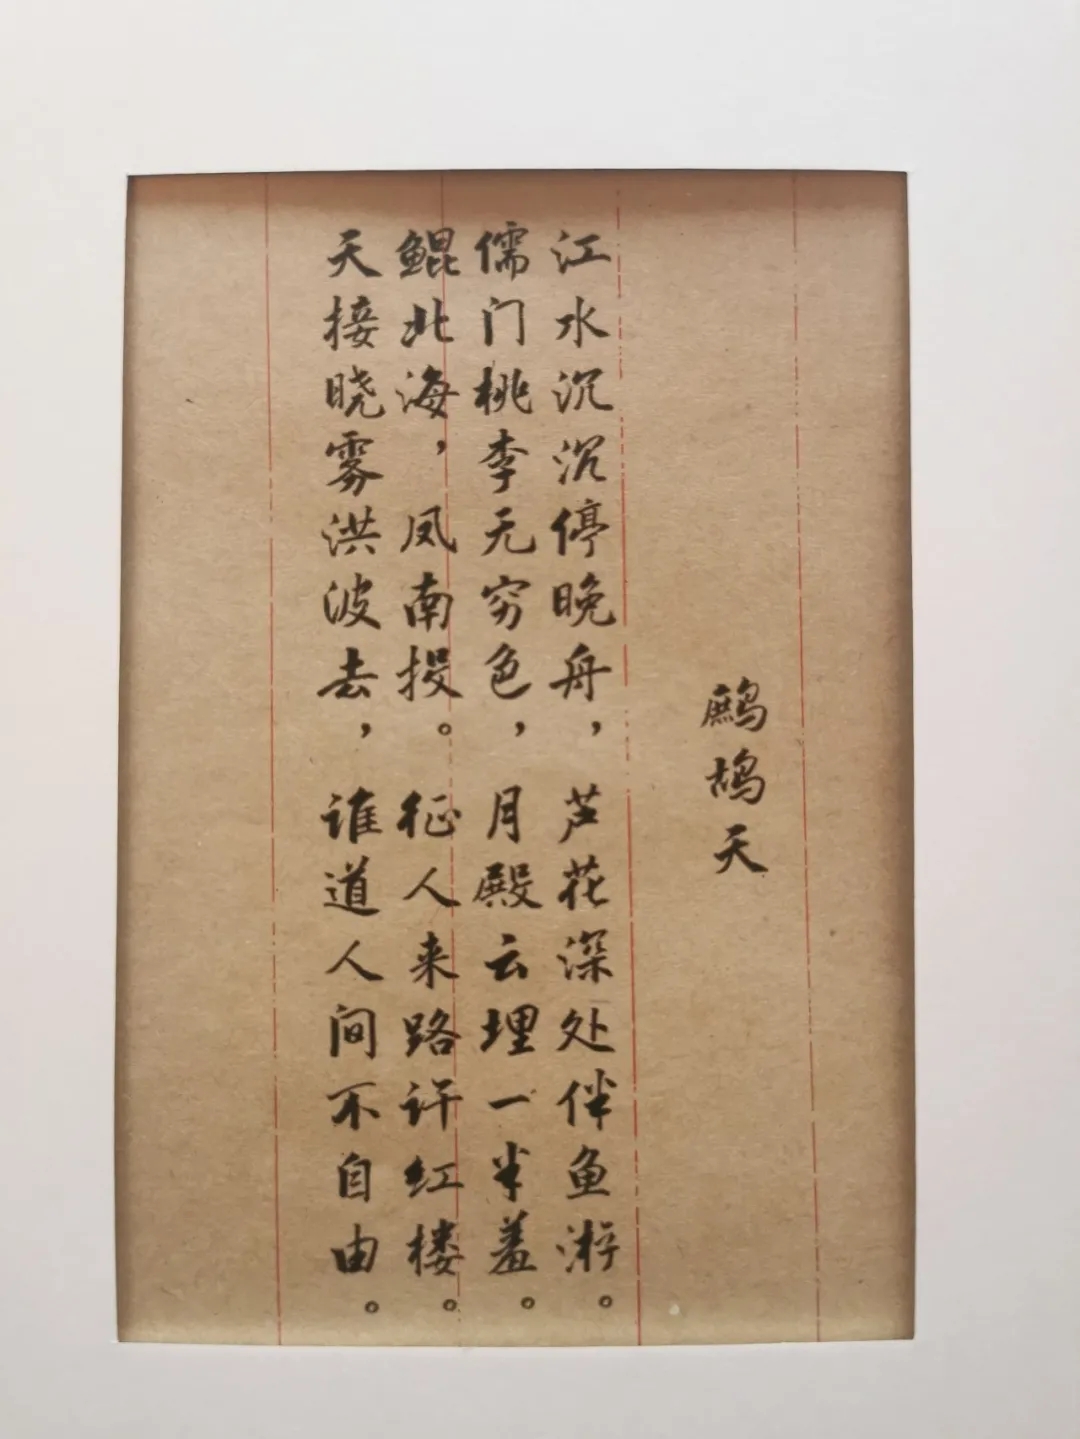 鹧鸪天
江水沉沉停晚舟，芦花深处伴鱼游。
儒门桃李无穷色，月殿云埋一半羞。
鲲北海，凤南投。征人来路许红楼。
天接晓雾洪波去，谁道人间不自由。